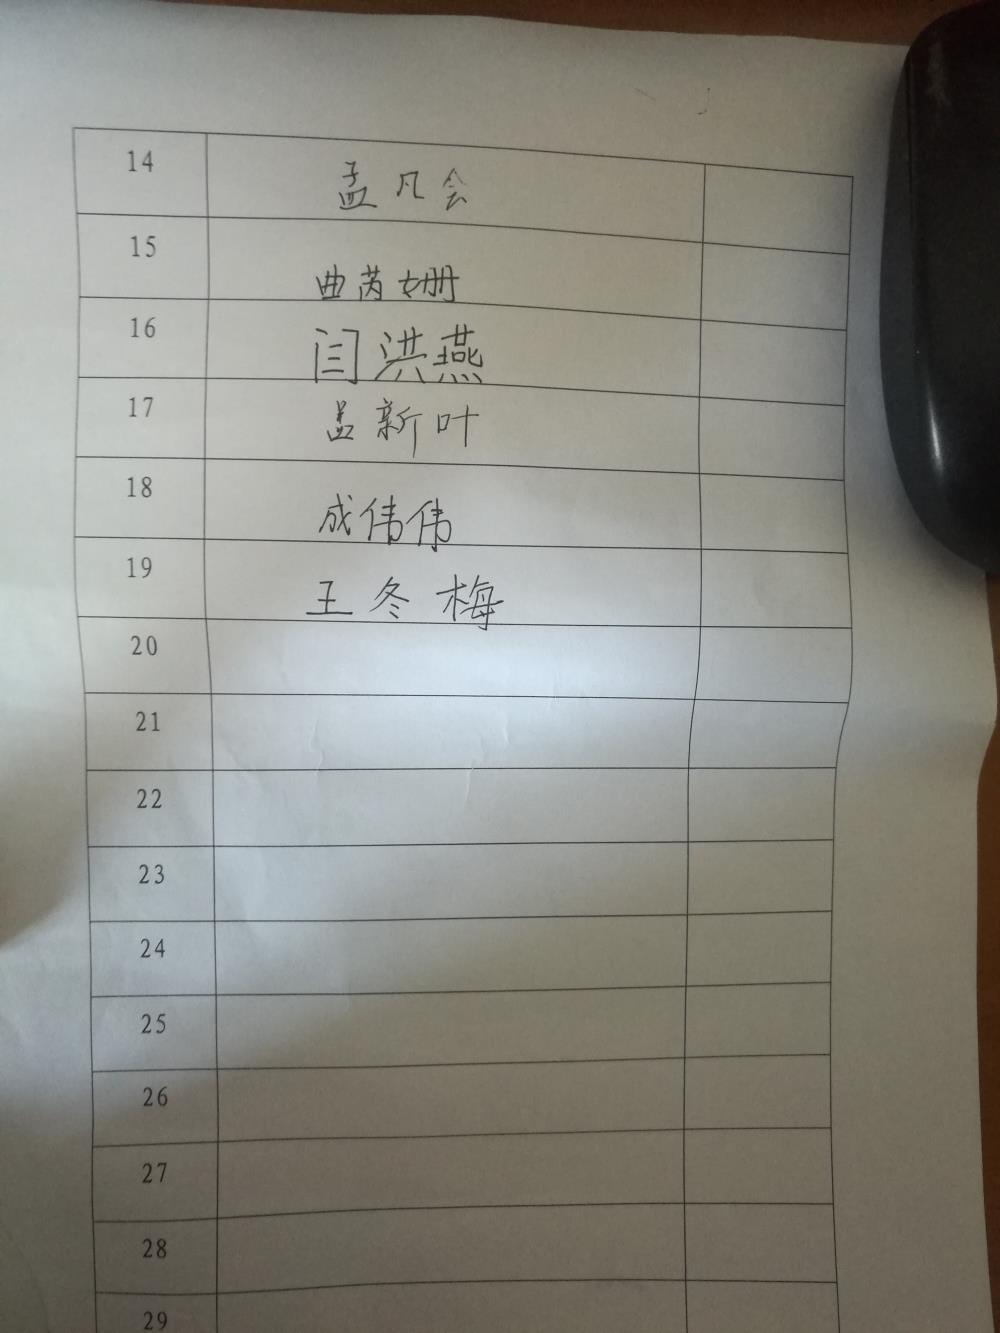 14 孟凡会
15 曲芮姗
16 闫洪燕
17 孟新叶
18 成伟伟
19 王冬梅
20
21
22
23
24
25
26
27
28
29